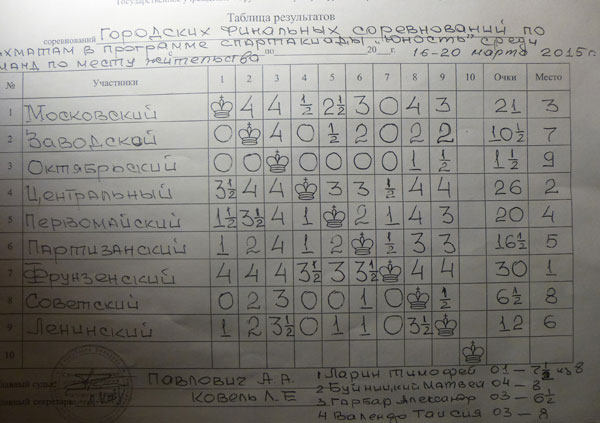 Таблица результатов
соревнований Городских финальных соревнований по
хматам в программе спартакиады „Юность" среди
манд по месту жительства с по 20 г. 16-20 марта 2015г.
№ Участники 1 2 3 4 5 6 7 8 9 10 Очки Место
1 Московский 4 4 ½ 2½ 3 0 4 3 21 3
2 Заводской 0 4 0 ½ 2 0 2 2 10½ 7
3 Октябрьский 0 0 0 0 0 0 1 ½ 1½ 9
4 Центральный 3½ 4 4 3 3 ½ 4 4 26 2
5 Первомайский 1½ 3½ 4 1 2 1 4 3 20 4
6 Партизанский 1 2 4 1 2 ½ 3 3 16½ 5
7 Фрунзенский 4 4 4 3½ 3 3½ 4 4 30 1
8 Советский 0 2 3 0 0 1 0 ½ 6½ 8
9 Ленинский 1 2 3½ 0 1 1 0 3½ 12 6
10
лавный судья Павлович А.А.
лавный секретарь Ковель Л.Е
1 Ларин Тимофей 01 – из 8
2 Буйницкий Матвей 04 – 8
3 Гарбар Александр 03 – 6½
4 Валендо Таисия 03 – 8